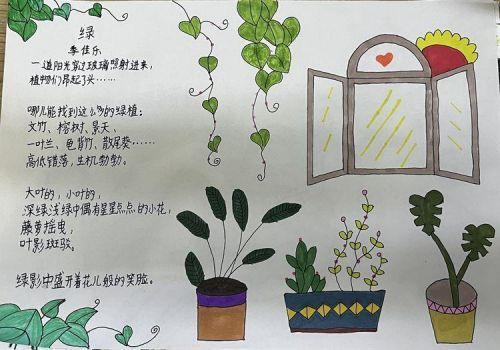 绿
李佳乐
一道阳光穿过玻璃照射进来,
植物们昂起了头……
哪儿能找到这么多的绿植:
文竹、榕树、景天、
一叶兰、龟背竹、散尾葵……
高低错落,生机勃勃。
大叶的,小叶的,
深绿浅绿中偶有星星点点的小花,
藤蔓摇曳,
叶影斑驳。
绿影中盛开着花儿般的笑脸。